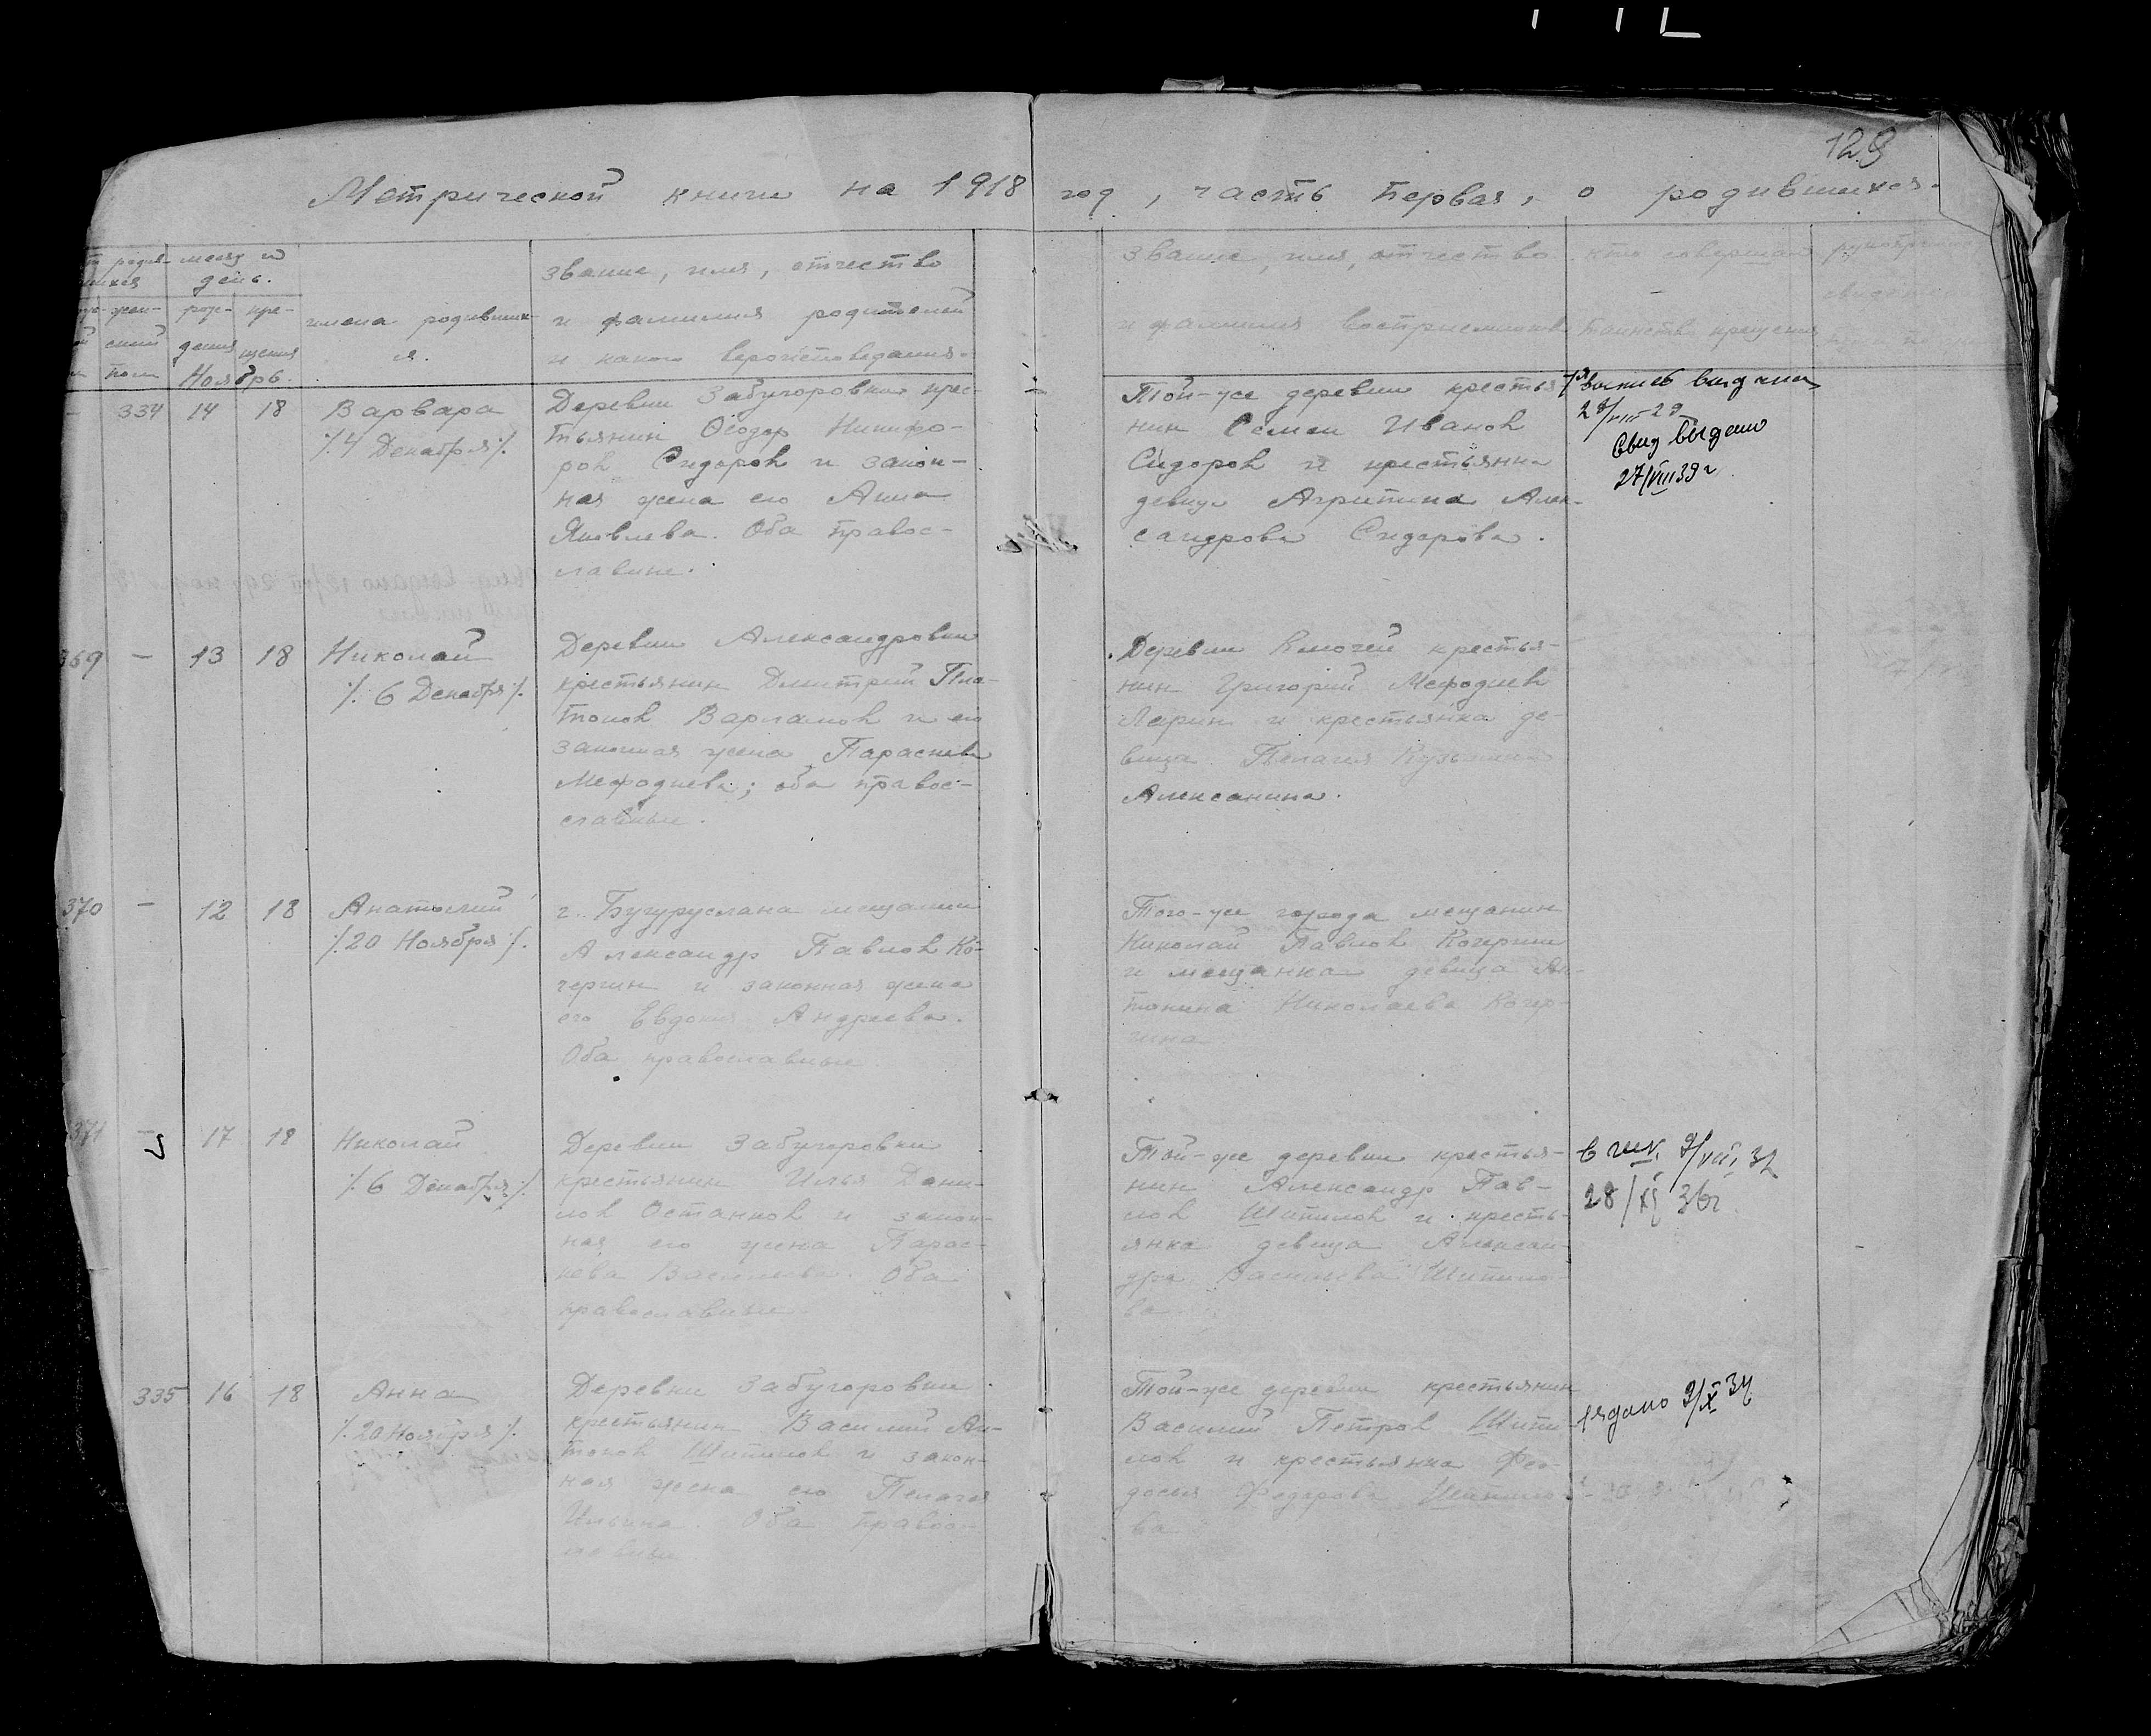 129
Метрической книги на 1918 год, часть первая, о родившихся.
месяц и
день.
рож- кре-
дения щения
Ноябрь.
имена родивших-
ся.
звание, имя, отчество
и фамилия родителей
и какого вероисповедания.
звание, имя, отчество
и фамилия восприемников
кто совершал
таинство крещения
334 14 18 Варвара
/.4 Декабря/.
Деревни Забугоровки крес-
тьянин Феодор Никифо-
ров Сидоров и закон-
ная жена его Анна
Яковлева. Оба правос-
лавные.
Той-же деревни крестья-
нин Семен Иванов
Сидоров и крестьянка
девица Агрипина Алек-
сандрова Сидорова.
выдана
29/VIII 29
Свид выдано
27/VIII 39 г
369 — 13 18 Николай
/. 6 Декабря/.
Деревни Александровки
крестьянин Димитрий Пла-
тонов Варламов и его
законная жена Параскева
Мефодиева; оба правос-
славные.
Деревни Ключей крестья-
нин Григорий Мефодиев
Ларин и крестьянка де-
вица Пелагия Кузьмина
Алексанина.
370 — 12 18 Анатолий
/.20 Ноября/.
г. Бугуруслана мещанин
Александр Павлов Ко-
чергин и законная жена
его Евдокия Андреева.
Оба православные
Того-же города мещанин
Николай Павлов Кочергин
и мещанка девица Ан-
тонина Николаева Кочер-
гина
371 — 17 18 Николай
/.6 Декабря/.
Деревни Забугоровки
крестьянин Илья Дани-
лов Останков и закон-
ная его жена Парас-
кева Васильева. Оба
православные.
Той-же деревни крестья-
нин Александр Пав-
лов Шипилов и кресть-
янка девица Алексан-
дра Васильева Шипило-
ва
9/VIII 32
28/XI 36г
335 16 18 Анна
/.20 Ноября/.
Деревни Забугоровки
крестьянин Василий Ан-
тонов Шипилов и закон-
ная жена его Пелагея
Ильина. Оба правос-
лавные
Той-же деревни крестьянин
Василий Петров Шипи-
лов и крестьянка Фео-
досия Федорова Шипило-
ва
9/X 34